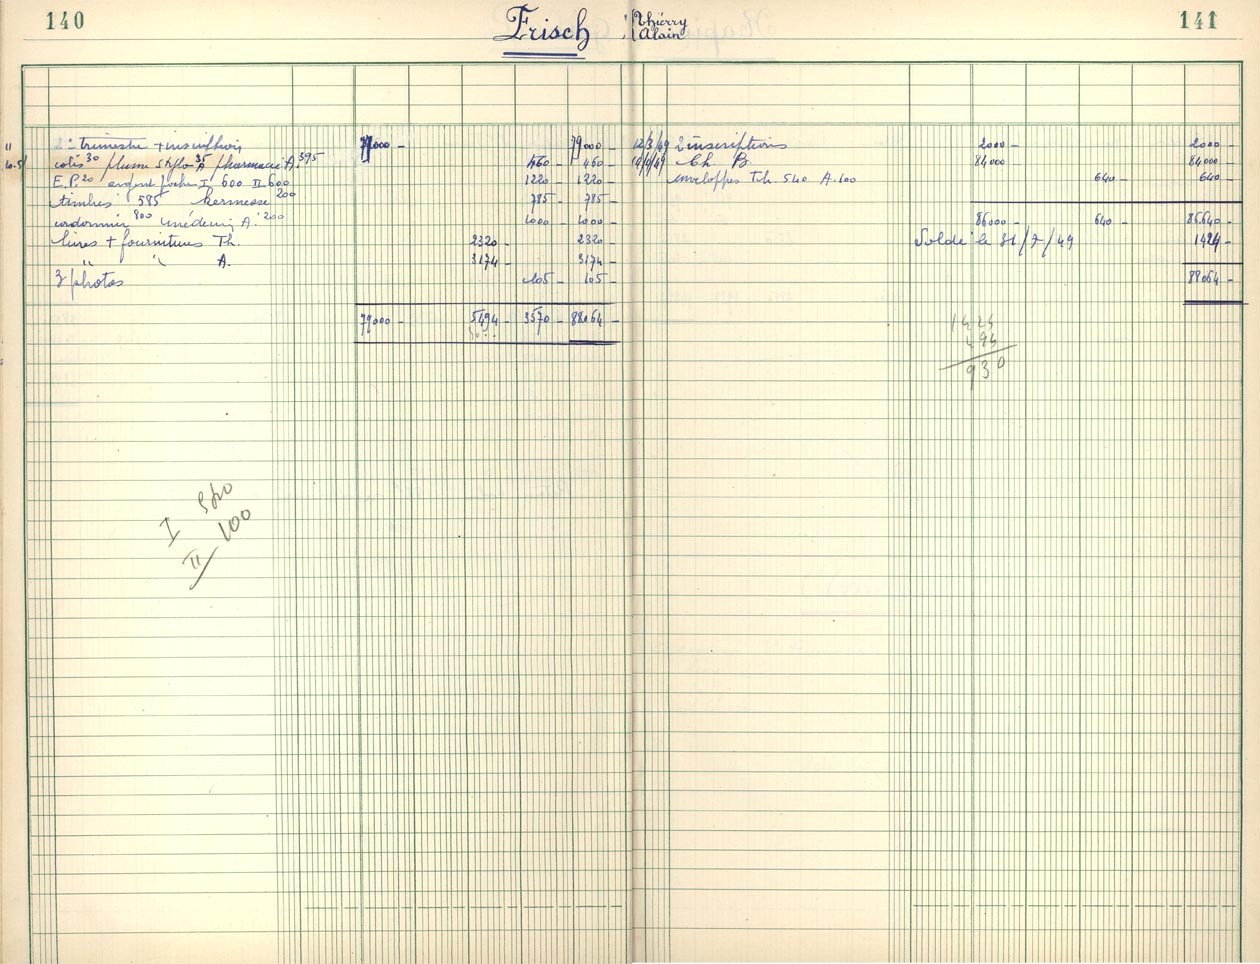 140
Frisch { Thierry
Alain
141
" 2e trimestre + inscription 79000 - 79000 -
cotis 30 plume stylo 35 A pharmacie A. 395 460 - 460 -
E.P. 20 argent poche I 600 II 600 1220 - 1220 -
timbres 585 kermesse 200 785 - 785 -
cordonnier 800 médecin A. 200 1000 - 1000 -
livres + fournitures Th. 2320 - 2320 -
" " A. 3174 - 3174 -
3 photos 105 - 105 -
79000 - 5494 - 3570 - 88064 -
I 540
II 100
12/3/49 2 inscriptions 2000 - 2000 -
Ch. P. 84000 84000 -
enveloppes Th. 540 A. 100 640 - 640 -
86000 - 640 - 86640 -
Solde le 31/7/49 1424 -
88064 -
930